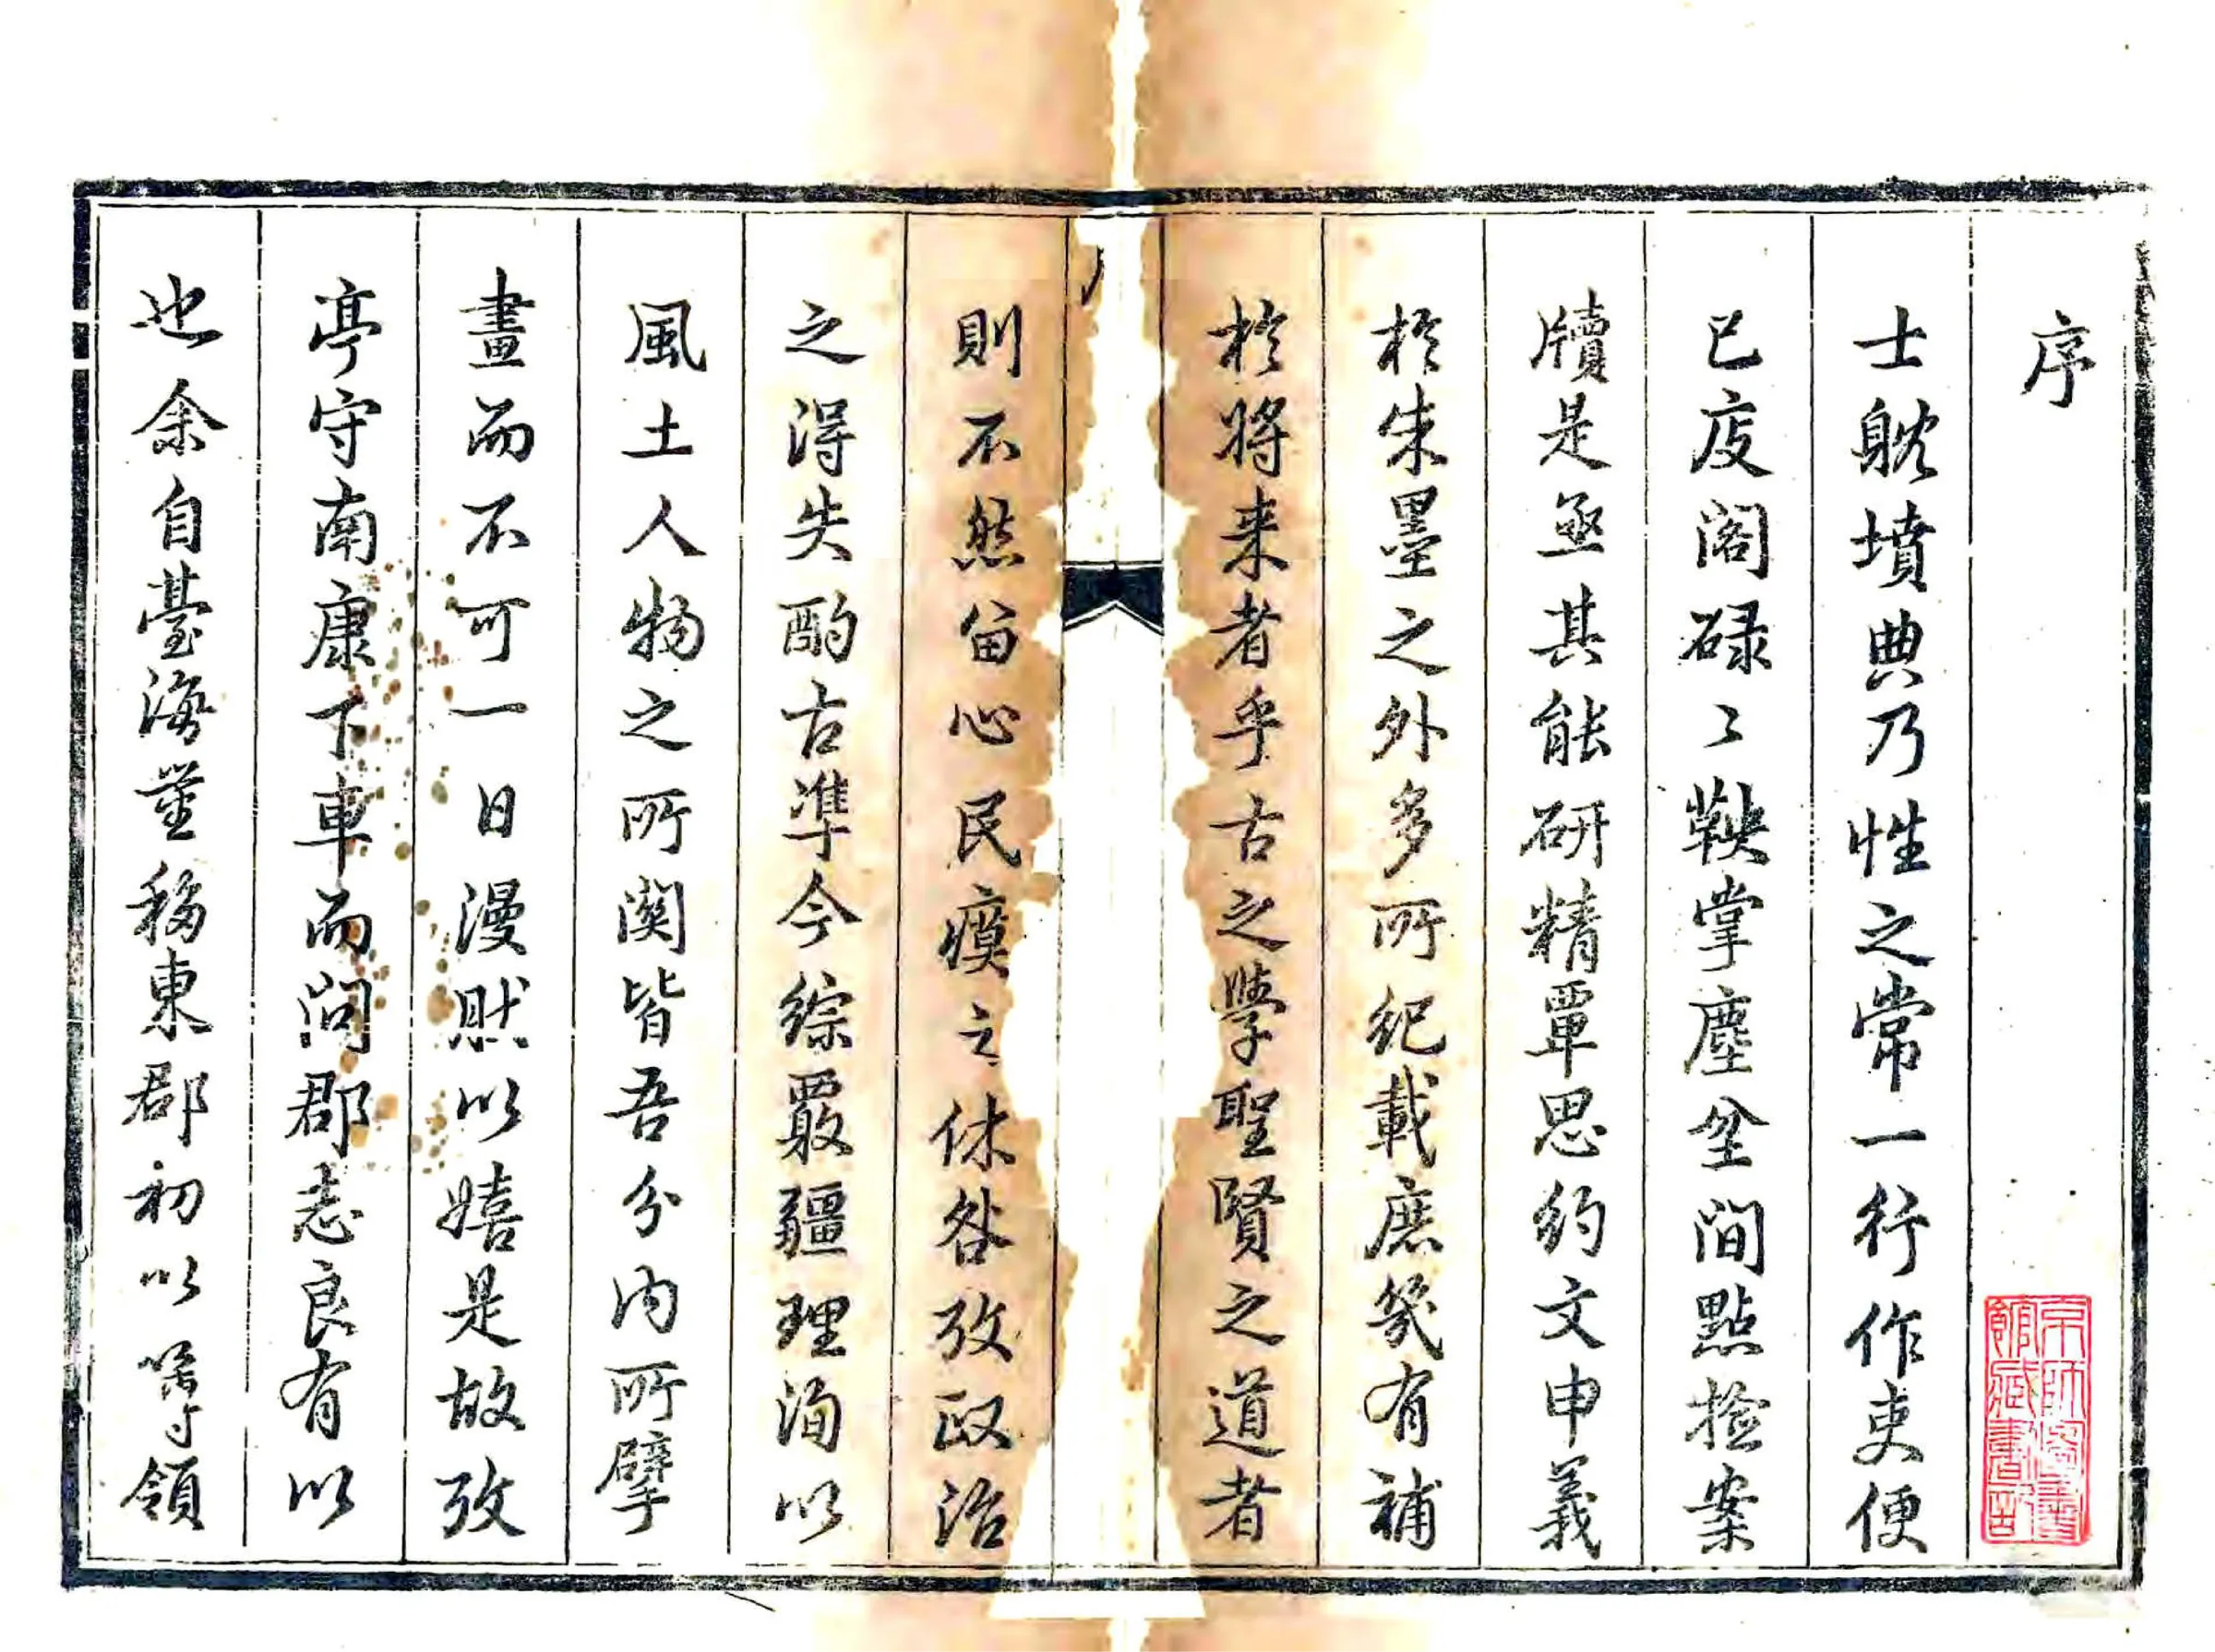 序
士躭墳典乃性之常一行作吏便
已庋閣碌〻鞅掌塵坌間點檢案
牘是亟其能研精覃思約文申義
於朱墨之外多所紀載庶幾有補
於將来者乎古之學聖賢之道者
則不然留心民瘼之休咎攷政治
之得失酌古準今綜覈疆理洵以
風土人物之所関皆吾分内所擘
畫而不可一日漫然以嬉是故攷
亭守南康下車而問郡志良有以
也余自臺海量移東郡初以簿領
京師圖書館藏書記